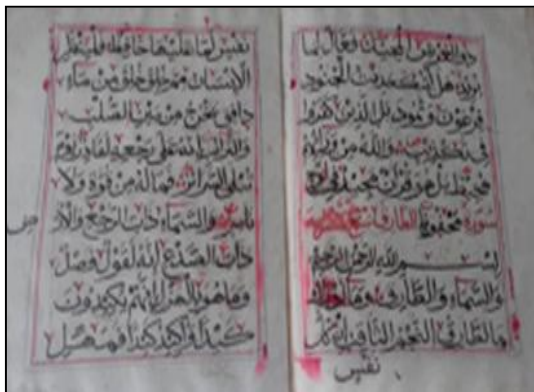 ذو العرش المجيد فعال لما
يريد هل اتك حديث الجنود
فرعون وثمود بل الذين كفروا
في تكذيب والله من ورائهم
محيط بل هو قرآن مجيد في لوح
محفوظ سورة الطارق
بسم الله الرحمن الرحيم
والسماء والطارق وما ادراك
ما الطارق النجم الثاقب ان كل
نفس
نفس لما عليها حافظ فلينظر
الانسان مم خلق خلق من ماء
دافق يخرج من بين الصلب
والترائب انه على رجعه لقادر يوم
تبلى السرائر فما له من قوة ولا
ناصر والسماء ذات الرجع والارض
ذات الصدع انه لقول فصل
وما هو بالهزل انهم يكيدون
كيدا واكيد كيدا فمهل